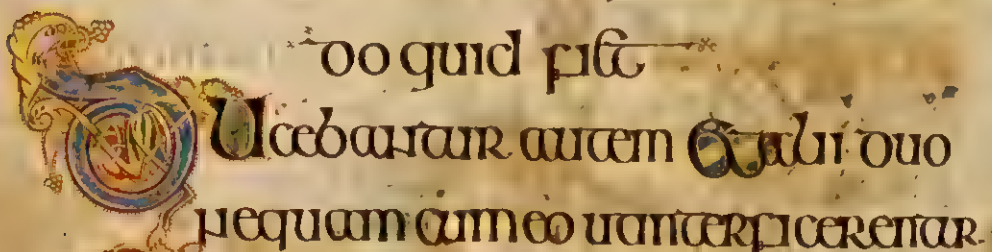 do quid fiet
Ducebantur autem Et alii duo
nequam cum eo ut interficerentur